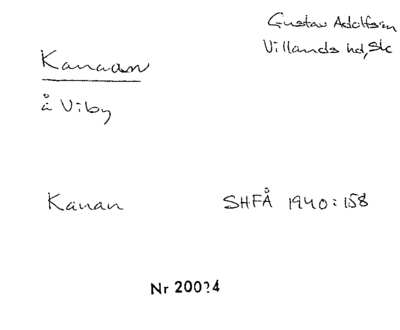 Gustav Adolfs sn
Villands hd, Sk
Kanaan
å Viby
Kanan SHFÅ 1940:158
Nr 20024